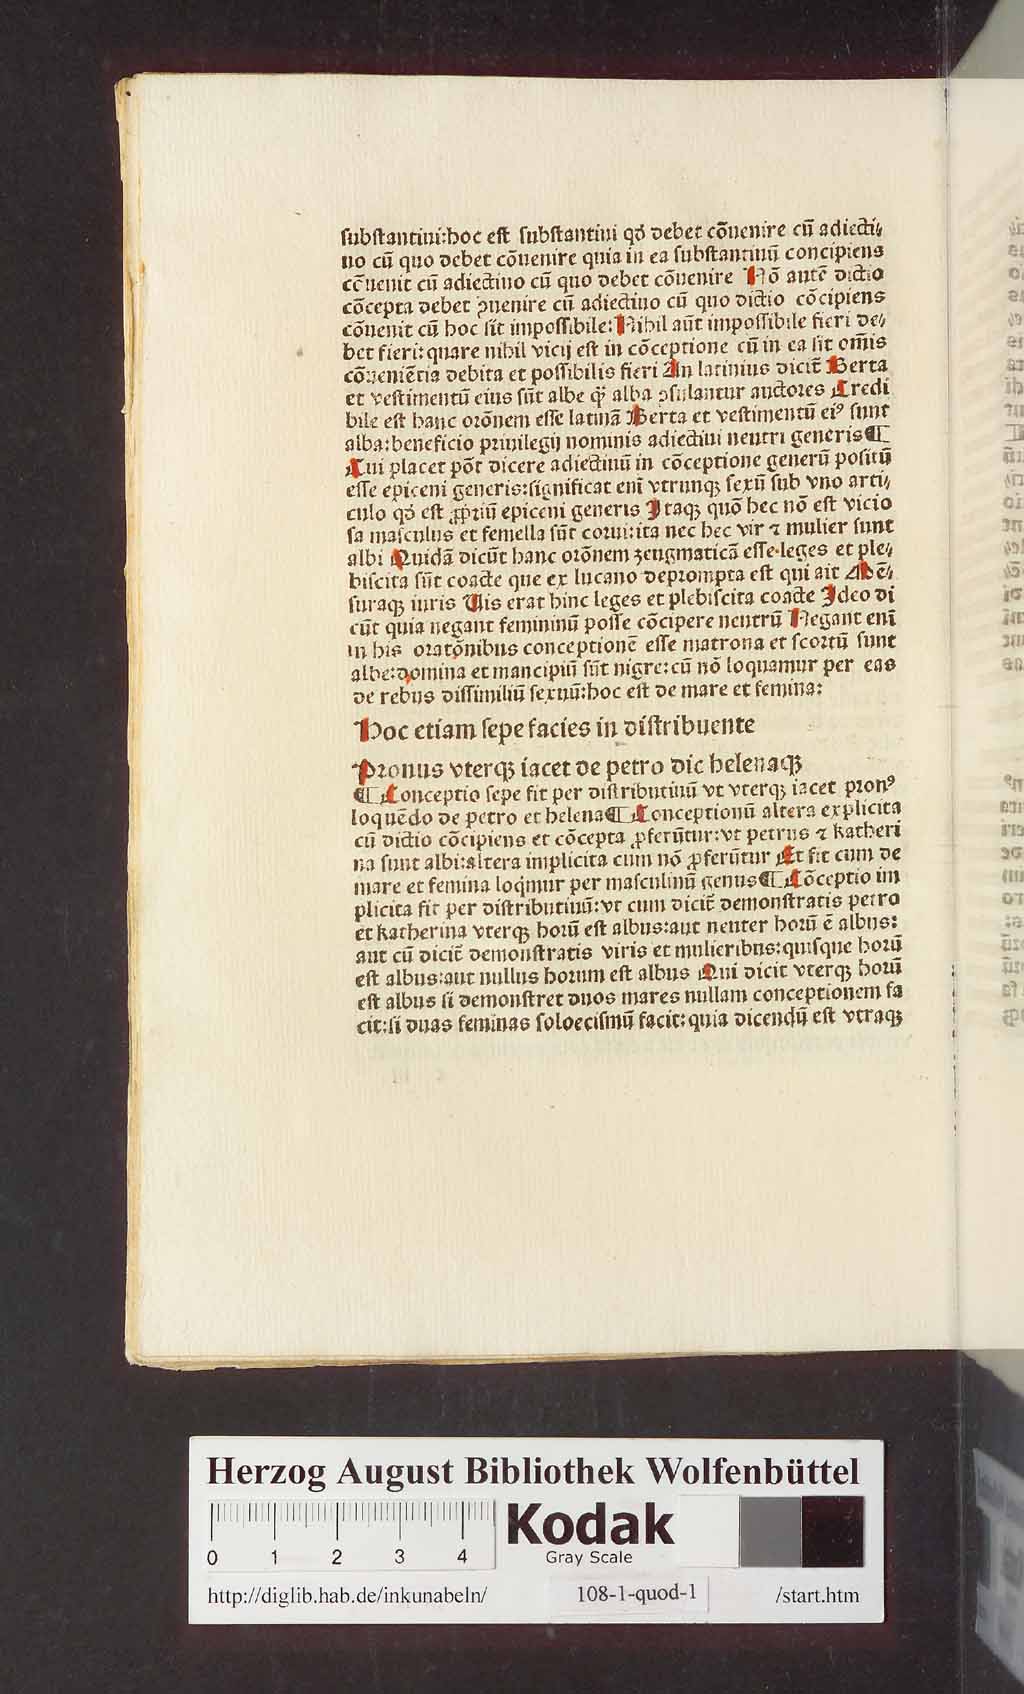 substantiui:hoc est substantiui qd debet cõuenire cũ adiecti⸗
uo cũ quo debet cõuenire quia in ea substantiuũ concipiens
cõuenit cũ adiectiuo cũ quo debet cõuenire Nõ autẽ dictio
cõcepta debet ꝯuenire cũ adiectiuo cũ quo dictio cõcipiens
cõuenit cũ hoc sit impossibile: Nihil aũt impossibile fieri de⸗
bet fieri: quare nihil vicij est in cõceptione cũ in ea sit om̃is
cõueniẽtia debita et possibilis fieri An latinius dicit̃ Berta
et vestimentũ eius sũt albe q̃ alba ꝯsulantur auctores Credi
bile est hanc orõnem esse latinã Berta et vestimentũ eiꝰ sunt
alba: beneficio priuilegij nominis adiectiui neutri generis¶
Cui placet põt dicere adiectiuũ in cõceptione generũ positũ
esse epiceni generis: significat eni vtrunqꝫ sexũ sub vno arti⸗
culo qd est ꝓpriũ epiceni generis Itaqꝫ quõ hec nõ est vicio
sa masculus et femella sũt corui: ita nec hec vir ⁊ mulier sunt
albi Quidã dicũt hanc orõnem zeugmaticã esse·leges et ple⸗
biscita sũt coacte que ex lucano deprompta est qui ait Mẽ⸗
suraqꝫ iuris Uis erat hinc leges et plebiscita coacte Ideo di
cũt quia negant femininũ posse cõcipere neutrũ Negant eni
in his oratõnibus conceptionẽ esse matrona et scortũ sunt
albe: domina et mancipiũ sũt nigre: cũ nõ loquamur per eas
de rebus dissimiliũ sexuũ: hoc est de mare et femina:
Hoc etiam sepe facies in distribuente
Pronus vterqꝫ iacet de petro dic helenaqꝫ
¶ Conceptio sepe fit per distributiuũ vt vterqꝫ iacet pronꝰ
loquẽdo de petro et helena¶ Conceptionũ altera explicita
cũ dictio cõcipiens et cõcepta ꝓferũtur: vt petrus ⁊ katheri
na sunt albi: altera implicita cum nõ ꝓferũtur Et fit cum de
mare et femina loqmur per masculinũ genus¶ Cõceptio im
plicita fit per distributiuũ: vt cum dicit̃ demonstratis petro
et katherina vterqꝫ horũ est albus: aut neuter horũ ẽ albus:
aut cũ dicit̃ demonstratis viris et mulieribus: quisque horũ
est albus: aut nullus horum est albus Qui dicit vterqꝫ horũ
est albus si demonstret duos mares nullam conceptionem fa
cit: si duas feminas soloecismũ facit: quia dicendũ est vtraqꝫ
Herzog August Bibliothek Wolfenbüttel
0 1 2 3 4
Kodak
Gray Scale
http://diglib.hab.de/inkunabeln/ 108-1-quod-1 /start.htm